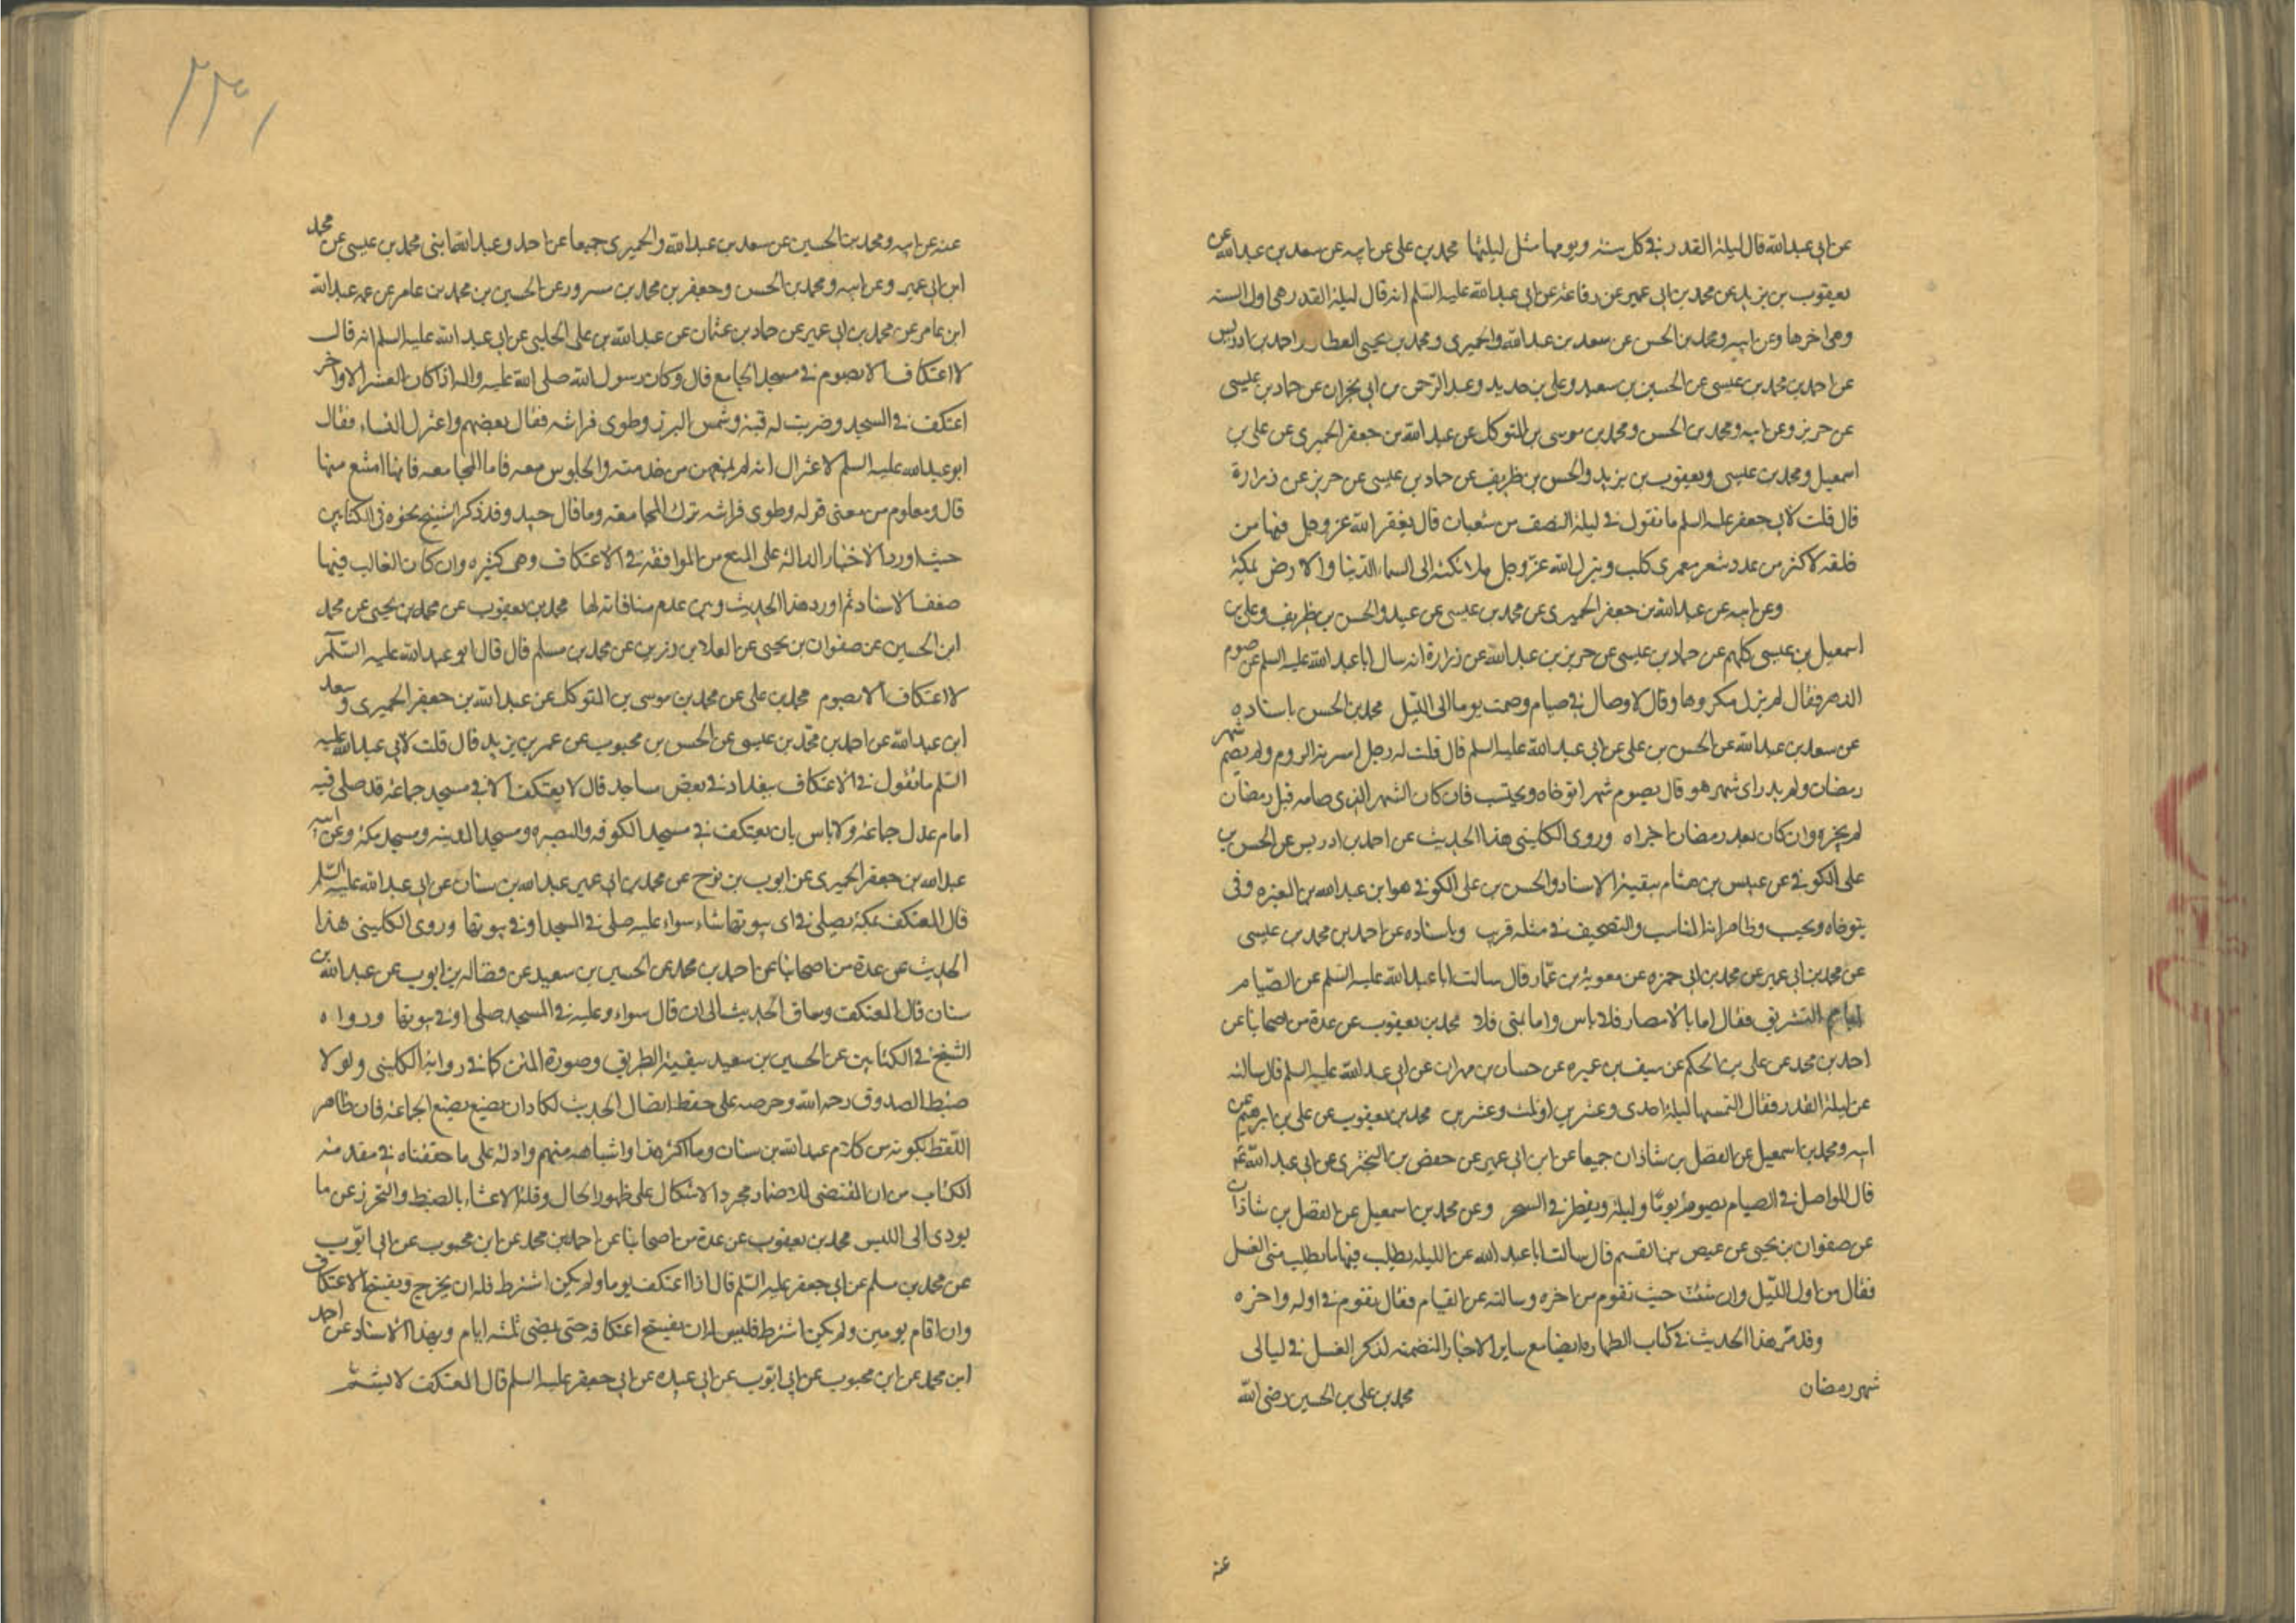 عن ابي عبدالله قال ليلة القدر في كل سنة ويومها مثل ليلتها محمد بن علي عن ابيه عن سعد بن عبدالله عن
يعقوب بن يزيد عن محمد بن ابي عمير عن رفاعة عن ابي عبدالله عليه السلم انه قال ليلة القدر هي اول السنة
وهي اخرها وعن ابيه ومحمد بن الحسن عن سعد بن عبدالله والحميري ومحمد بن يحيى العطار واحمد بن ادريس
عن احمد بن محمد بن عيسى عن الحسين بن سعيد وعلي بن حديد وعبد الرحمن بن ابي نجران عن حماد بن عيسى
عن حريز وعن ابيه ومحمد بن الحسن ومحمد بن موسى بن المتوكل عن عبدالله بن جعفر الحميري عن علي بن
اسمعيل ومحمد بن عيسى ويعقوب بن يزيد والحسن بن ظريف عن حماد بن عيسى عن حريز عن زرارة
قال قلت لابي جعفر عليه السلم ما تقول في ليلة النصف من شعبان قال يغفر الله عز وجل فيها من
خلقه لاكثر من عدد شعر معزى كلب وينزل الله عز وجل ملائكته الى السماء الدنيا والارض بمكة
وعن ابيه عن عبدالله بن جعفر الحميري عن محمد بن عيسى عن عبيد والحسن بن ظريف وعلي بن
اسمعيل بن عيسى كلهم عن حماد بن عيسى عن حريز بن عبدالله عن زرارة انه سال ابا عبدالله عليه السلم عن صوم
الدهر فقال لم يزل مكروها وقال لا وصال في صيام وصمت يوما الى الليل محمد بن الحسن باسناده
عن سعد بن عبدالله عن الحسن بن علي عن ابي عبدالله عليه السلم قال قلت له رجل اسرته الروم ولم يصم شهر
رمضان ولم يدر اي شهر هو قال يصوم شهرا يتوخاه ويحتسب فان كان الشهر الذي صامه قبل رمضان
لم يجزه وان كان بعد رمضان اجزاه وروى الكليني هذا الحديث عن احمد بن ادريس عن الحسن بن
علي الكوفي عن عبيس بن هشام ببقية الاسناد والحسن بن علي الكوفي هو ابن عبدالله بن المغيرة وفي
يتوخاه ويحسب وظاهر انه المناسب والتصحيف في مثله قريب وباسناده عن احمد بن محمد بن عيسى
عن محمد بن ابي عمير عن محمد بن ابي حمزه عن معوية بن عمار قال سالت ابا عبدالله عليه السلم عن الصيام
ايام التشريق فقال اما بالامصار فلا باس واما بمنى فلا محمد بن يعقوب عن عدة من اصحابنا عن
احمد بن محمد عن علي بن الحكم عن سيف بن عميره عن حسان بن مهران عن ابي عبدالله عليه السلم قال سالته
عن ليلة القدر فقال التمسها ليلة احدى وعشرين او ثلث وعشرين محمد بن يعقوب عن علي بن ابرهيم عن
ابيه ومحمد بن اسمعيل عن الفضل بن شاذان جميعا عن ابن ابي عمير عن حفص بن البختري عن ابي عبدالله ع م
قال المواصل في الصيام يصوم يوما وليلة ويفطر في السحر وعن محمد بن اسمعيل عن الفضل بن شاذان
عن صفوان بن يحيى عن عيص بن القسم قال سالت ابا عبدالله عن الليلة يطلب فيها ما يطلب متى الغسل
فقال من اول الليل وان شئت حيث تقوم من اخره وسالته عن القيام فقال تقوم في اوله واخره
وقد مر هذا الحديث في كتاب الطهاره ايضا مع ساير الاخبار المتضمنه لذكر الغسل في ليالى
شهر رمضان محمد بن علي بن الحسين رضي الله
عنه
٢٣١
عنه عن ابيه ومحمد بن الحسين عن سعد بن عبدالله والحميري جميعا عن احمد وعبدالله ابني محمد بن عيسى عن محمد
ابن ابي عمير وعن ابيه ومحمد بن الحسن وجعفر بن محمد بن مسرور عن الحسين بن محمد بن عامر عن عمه عبدالله
ابن عامر عن محمد بن ابي عمير عن حماد بن عثمان عن عبدالله بن علي الحلبي عن ابي عبدالله عليه السلم انه قال
لا اعتكاف الا بصوم في مسجد الجامع قال وكان رسول الله صلى الله عليه واله اذا كان العشر الاواخر
اعتكف في المسجد وضربت له قبة وشمر المئزر وطوى فراشه فقال بعضهم واعتزل النساء فقال
ابو عبدالله عليه السلم لا اعتزال انه لم يمنعهن من خدمته والجلوس معه فاما المجامعه فانها امتنع منها
قال ومعلوم من معنى قوله وطوى فراشه ترك المجامعه وما قال جيد وقد ذكر الشيخ نحوه في الكتابين
حيث اورد الاخبار الدالة على المنع من المواقعة في الاعتكاف وهي كثيره وان كان الغالب فيها
ضعف الاسناد ثم اورد هذا الحديث وبين عدم منافاته لها محمد بن يعقوب عن محمد بن يحيى عن محمد
ابن الحسين عن صفوان بن يحيى عن العلا بن رزين عن محمد بن مسلم قال قال ابو عبدالله عليه السلم
لا اعتكاف الا بصوم محمد بن علي عن محمد بن موسى بن المتوكل عن عبدالله بن جعفر الحميري وسعد
ابن عبدالله عن احمد بن محمد بن عيسى عن الحسن بن محبوب عن عمر بن يزيد قال قلت لابي عبدالله عليه
السلم ما تقول في الاعتكاف ببغداد في بعض مساجد قال لا يعتكف الا في مسجد جماعة قد صلى فيه
امام عدل جماعة ولا باس بان يعتكف في مسجد الكوفه والبصره ومسجد المدينه ومسجد مكة وعن ابيه
عبدالله بن جعفر الحميري عن ايوب بن نوح عن محمد بن ابي عمير عبدالله بن سنان عن ابي عبدالله عليه السلم
قال المعتكف بمكة يصلي في اي بيوتها شاء سواء عليه صلى في المسجد او في بيوتها وروى الكليني هذا
الحديث عن عدة من اصحابنا عن احمد بن محمد عن الحسين بن سعيد عن فضاله بن ايوب عن عبدالله بن
سنان قال المعتكف وساق الحديث الى ان قال سواء وعليه في المسجد صلى او في بيوتها ورواه
الشيخ في الكتابين عن الحسين بن سعيد ببقية الطريق وصورة المتن كما في رواية الكليني ولولا
ضبط الصدوق رحمه الله وحرصه على حفظ اتصال الحديث لكاد ان يضيع بصنيع الجماعة فان ظاهر
اللفظ بكونه من كلام عبدالله بن سنان وما اكثر هذا واشباهه منهم وادله على ما حققناه في مقدمة
الكتاب من ان المقتضى للاضمار مجرد الاتكال على ظهور الحال وقلة الاعتناء بالضبط والتحرز عن ما
يودى الى اللبس محمد بن يعقوب عن عدة من اصحابنا عن احمد بن محمد عن ابن محبوب عن ابي ايوب
عن محمد بن مسلم عن ابي جعفر عليه السلم قال اذا اعتكف يوما ولم يكن اشترط فله ان يخرج ويفسخ الاعتكاف
وان اقام يومين ولم يكن اشترط فليس له ان يفسخ اعتكافه حتى يمضى ثلثه ايام وبهذا الاسناد عن احمد
ابن محمد عن ابن محبوب عن ابي ايوب عن ابي عبيده عن ابي جعفر عليه السلم قال المعتكف لا يشم